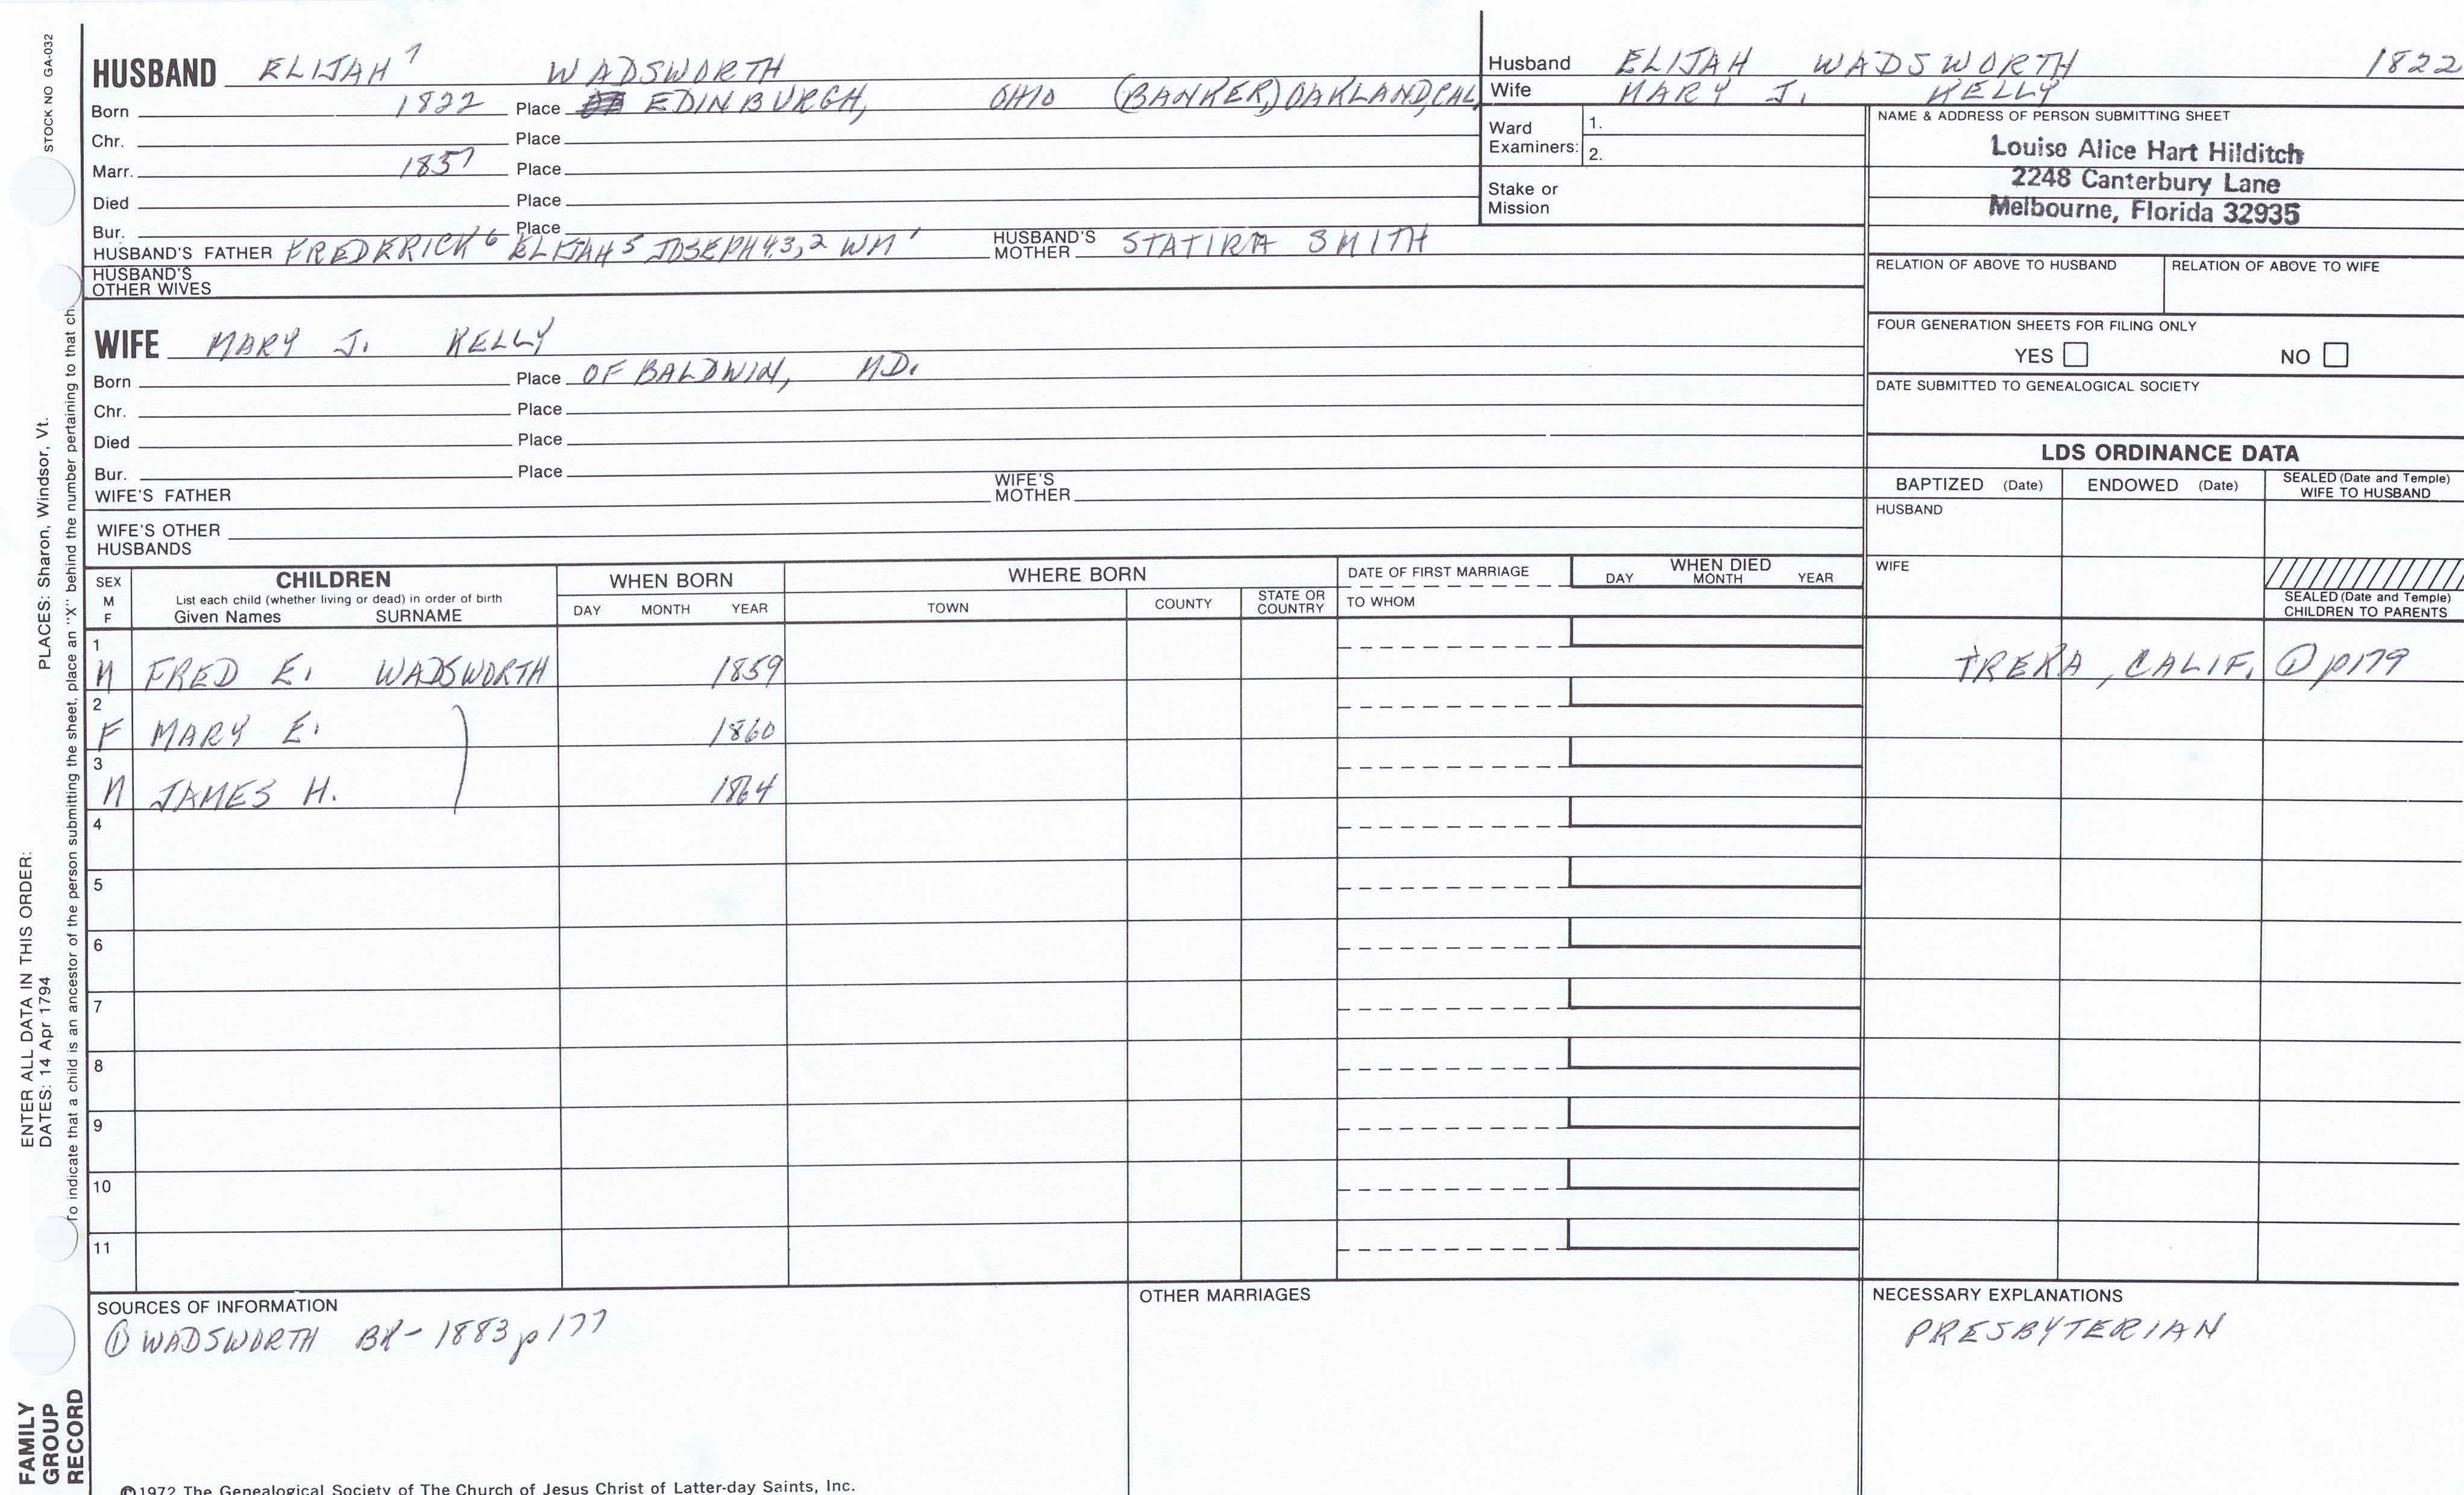 STOCK NO GA-032
HUSBAND ELIJAH 7 WADSWORTH
Born 1822 Place EDINBURGH, OHIO (BANKER,) OAKLAND, CAL
Chr. Place
Marr. 1857 Place
Died Place
Bur. Place
HUSBAND'S FATHER FREDERICK 6 ELIJAH 5 JOSEPH 4,3,2 WM 1 HUSBAND'S MOTHER STATIRA SMITH
HUSBAND'S OTHER WIVES
WIFE MARY J. KELLY
Born Place OF BALDWIN, MD.
Chr. Place
Died Place
Bur. Place
WIFE'S FATHER WIFE'S MOTHER
WIFE'S OTHER HUSBANDS
Husband ELIJAH WADSWORTH 1822
Wife MARY J. KELLY
Ward Examiners: 1.
2.
Stake or Mission
NAME & ADDRESS OF PERSON SUBMITTING SHEET
Louise Alice Hart Hilditch
2248 Canterbury Lane
Melbourne, Florida 32935
RELATION OF ABOVE TO HUSBAND RELATION OF ABOVE TO WIFE
FOUR GENERATION SHEETS FOR FILING ONLY
YES NO
DATE SUBMITTED TO GENEALOGICAL SOCIETY
LDS ORDINANCE DATA
BAPTIZED (Date) ENDOWED (Date) SEALED (Date and Temple) WIFE TO HUSBAND
HUSBAND
WIFE
SEALED (Date and Temple) CHILDREN TO PARENTS
SEX M F
CHILDREN
List each child (whether living or dead) in order of birth
Given Names SURNAME
WHEN BORN
DAY MONTH YEAR
WHERE BORN
TOWN COUNTY STATE OR COUNTRY
DATE OF FIRST MARRIAGE
TO WHOM
WHEN DIED
DAY MONTH YEAR
1 M FRED E. WADSWORTH 1859 YREKA, CALIF. ① p179
2 F MARY E. 1860
3 M JAMES H. 1864
4
5
6
7
8
9
10
11
SOURCES OF INFORMATION
① WADSWORTH BK - 1883 p 177
OTHER MARRIAGES
NECESSARY EXPLANATIONS
PRESBYTERIAN
©1972 The Genealogical Society of The Church of Jesus Christ of Latter-day Saints, Inc.
FAMILY GROUP RECORD
ENTER ALL DATA IN THIS ORDER:
DATES: 14 Apr 1794 PLACES: Sharon, Windsor, Vt.
To indicate that a child is an ancestor of the person submitting the sheet, place an "X" behind the number pertaining to that ch